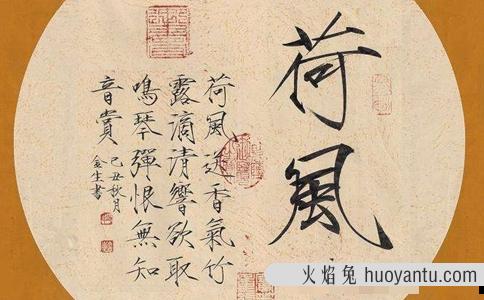 荷風
荷風送香氣竹
露滴清響欲取
鳴琴彈恨無知
音賞
己丑秋月
金生書
火焰兔 huoyantu.com